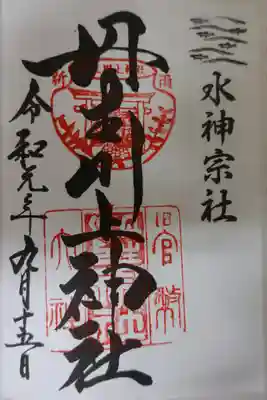 水神宗社
丹生川上神社
令和元年九月十五日
官幣
大社